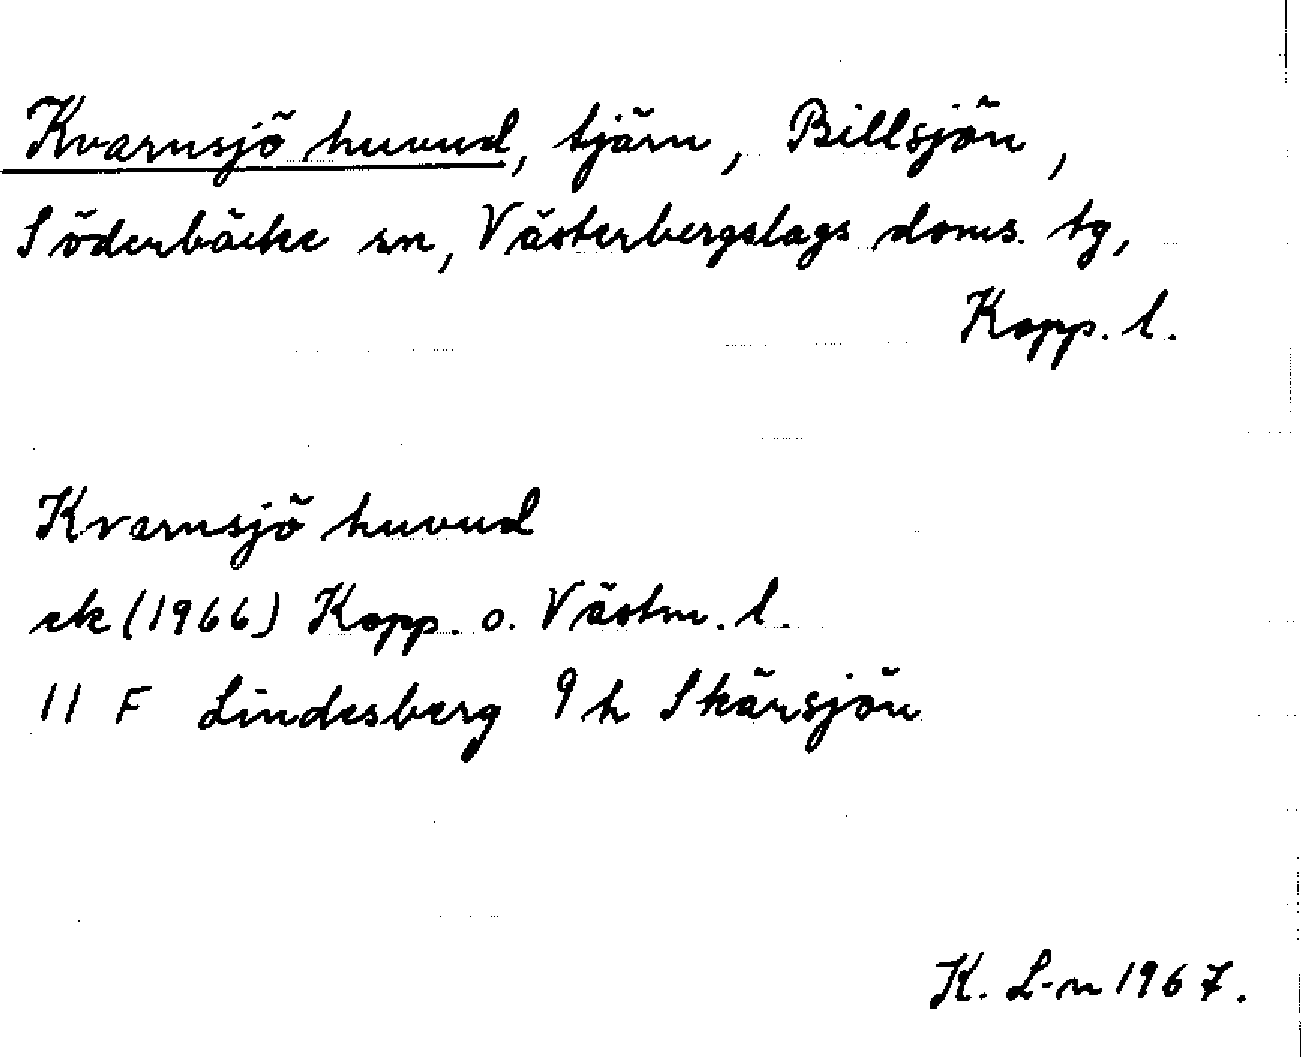 Kvarnsjö huvud, tjärn, Billsjön,
Söderbäcke sn, Västerbergslags doms. tg,
Kopp. l.
Kvarnsjö huvud
ek (1966) Kopp. o. Västm. l.
11 F Lindesberg 9 h Skärsjön
K. L-n 1967.